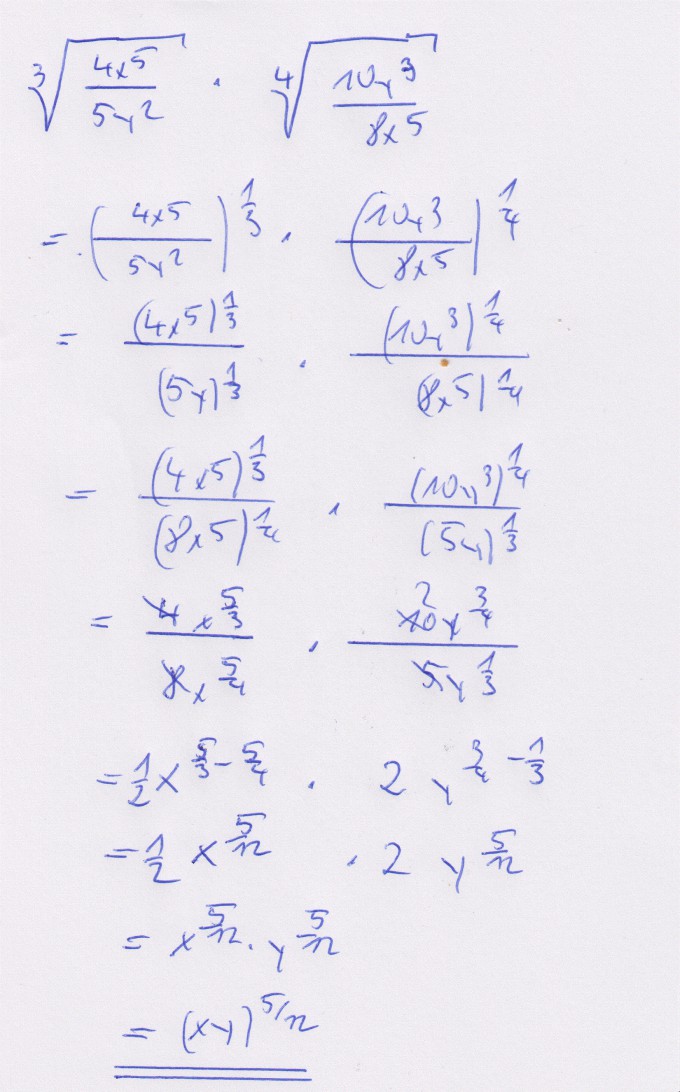 ∛(4x⁵/5y²) · ∜(10y³/8x⁵)
= (4x⁵/5y²)^(1/3) · (10y³/8x⁵)^(1/4)
= (4x⁵)^(1/3)/(5y)^(1/3) · (10y³)^(1/4)/(8x⁵)^(1/4)
= (4x⁵)^(1/3)/(8x⁵)^(1/4) · (10y³)^(1/4)/(5y)^(1/3)
= 4x^(5/3)/8x^(5/4) · 2 10y^(3/4)/5y^(1/3)
= 1/2 x^(5/3 - 5/4) · 2 y^(3/4 - 1/3)
= 1/2 x^(5/12) · 2 y^(5/12)
= x^(5/12) · y^(5/12)
= (xy)^(5/12)